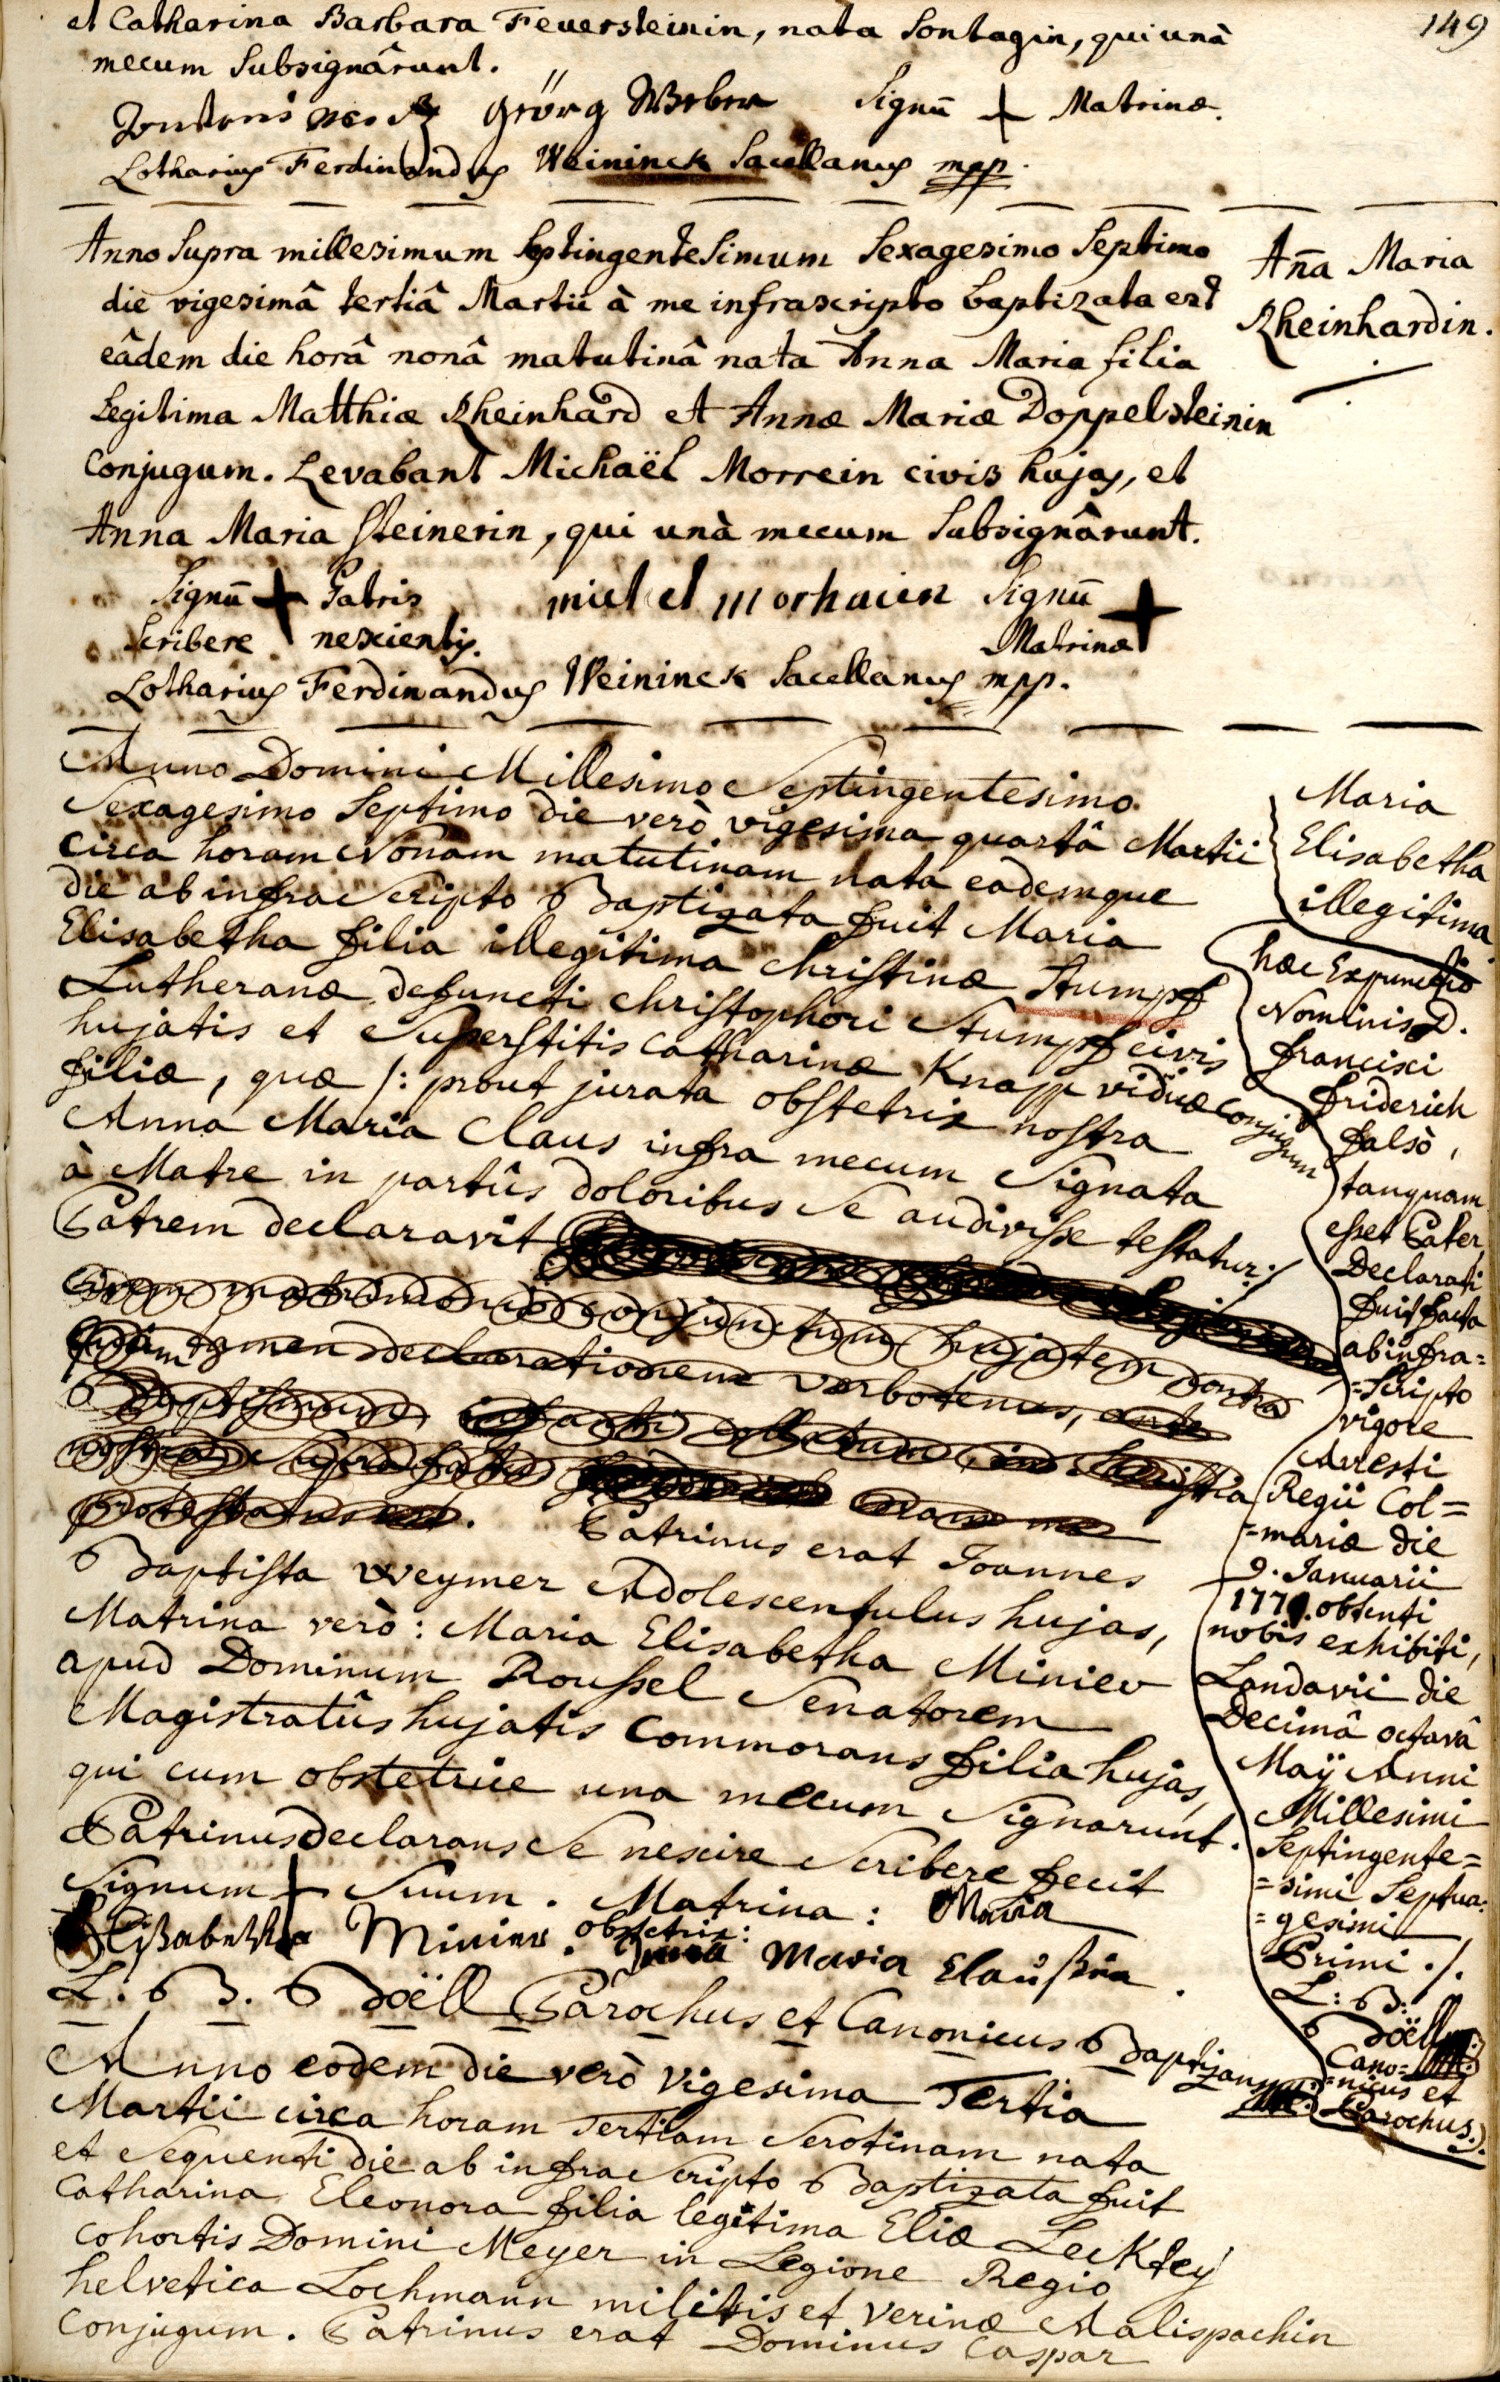 149
et Catharina Barbara Feuersteinin, nata Sontagin, qui unà
mecum Subsignârunt.
Geörg Weber Signũ + Matrinæ.
Lotharius Ferdinandus Weininck Sacellanus mpp.
Anno Supra millesimum Septingentesimum Sexagesimo Septimo
die vigesimâ tertiâ Martii à me infrascripto baptizata est
eâdem die horâ nonâ matutinâ nata Anna Maria filia
Legitima Matthiæ Rheinhard et Annæ Mariæ Doppelsteinin
Conjugum. Levabant Michaël Morrein civis hujas, et
Anna Maria Steinerin, qui unà mecum Subsignârunt.
Añna Maria
Rheinhardin.
Signũ + Patris michel morhaien Signũ +
Scribere nescientis. Matrinæ
Lotharius Ferdinandus Weininck Sacellanus mpp.
Anno Domini Millesimo Septingentesimo
Sexagesimo Septimo die verò vigesima quartâ Martii
Circa horam Nonam matutinam nata eademque
die ab infra Scripto Baptizata fuit Maria
Elisabetha filia illegitima Christinæ Stumpf
Lutheranæ defuncti Christophori Stumpf civis
hujatis et Superstitis Catharinæ Knapp viduæ Conjugum
filiæ, quæ /: prout jurata obstetrix nostra
Anna Maria Claus infra mecum Signata
à Matre in partûs doloribus Se audivisse testatur :/
Patrem declaravit
matrimonio conjunctum hujatem contra
quam tamen declarationem verbotenus, ante
Baptismum infanti collatum, in Sacristia
nostra Supra fatus coram me
protestatus est. Patrinus erat Joannes
Baptista Weymer Adolescentulus hujas,
Matrina verò: Maria Elisabetha Minier
apud Dominum Roussel Senatorem
Magistratûs hujatis Commorans filia hujas,
qui cum obstetrice una mecum Signarunt.
Patrinus declarans Se nescire Scribere fecit
Signum + Suum. Matrina: Maria
Elisabetha Minier. obstetrix:
Anna Maria Claußin.
L. B. Boëll Parochus et Canonicus Baptizans
Maria
Elisabetha
illegitima
hæc Expunctio
Nominis D.
Francisci
Friderich
falsò,
tanquam
esset Pater
Declarati
fuit facta
ab infra=
=Scripto
vigore
Arresti
Regii Col=
=mariæ die
9. Januarii
1771. obtenti
nobis exhibiti,
Landavii die
Decimâ octavâ
Maÿ Anni
Millesimi
Septingente=
=simi Septua=
=gesimi
Primi ./.
L: B:
Boëll
Cano=
=nicus et
Parochus.
Anno eodem die verò Vigesima Tertia
Martii circa horam Tertiam Serotinam nata
et Sequenti die ab infra Scripto Baptizata fuit
Catharina Eleonora filia legitima Eliæ Lecktey
Cohortis Domini Meyer in Legione Regio
helvetica Lochmann militis et Verinæ Aalispachin
Conjugum. Patrinus erat Dominus Caspar